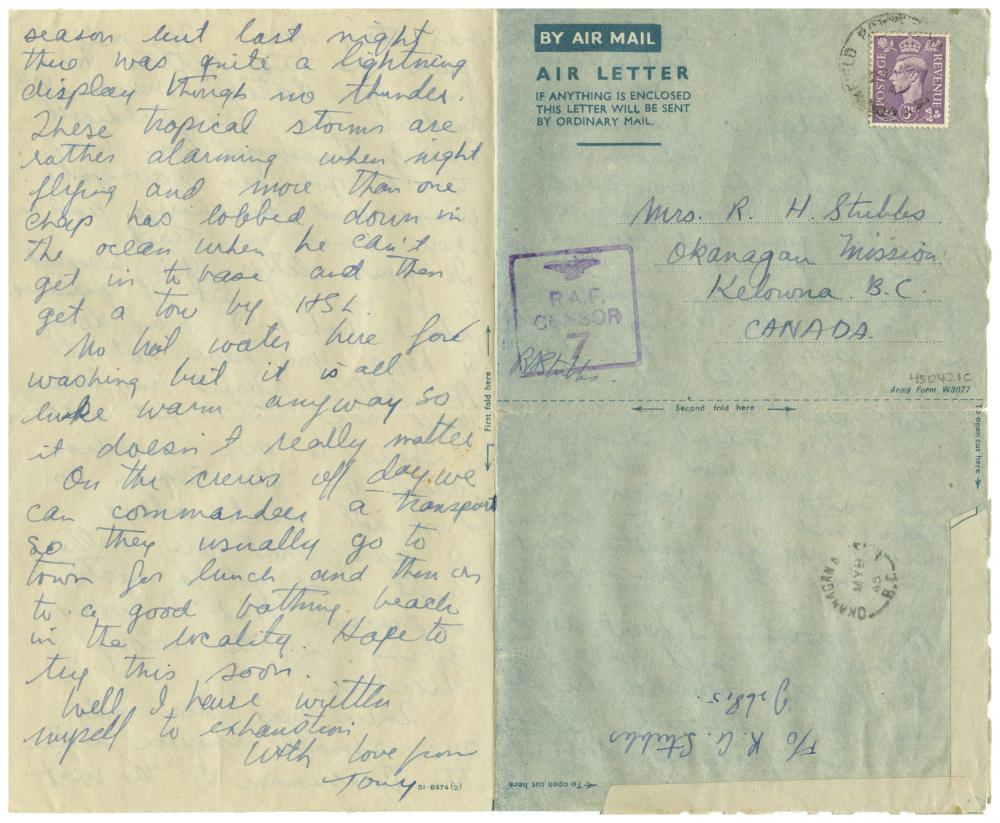 season but last night
there was quite a lightning
display though no thunder.
These tropical storms are
rather alarming when night
flying and more than one
chap has lobbed down in
the ocean when he can't
get in to base and then
get a tow by HSL.
No hot water here for
washing but it is all
luke warm anyway so
it doesn't really matter
On the crews off day we
can commandeer a transport
so they usually go to
town for lunch and then on
to a good bathing beach
in the locality. Hope to
try this soon.
Well I have written
myself to exhaustion
With love from
Tony
51-8474 (2)
First fold here
BY AIR MAIL
AIR LETTER
IF ANYTHING IS ENCLOSED
THIS LETTER WILL BE SENT
BY ORDINARY MAIL.
POSTAGE
REVENUE
3D
Mrs. R. H. Stubbs
Okanagan Mission
Kelowna B.C.
CANADA.
R.A.F.
CENSOR
7
RAStubbs.
450421C
Army Form W3077
Second fold here
To open cut here
OKANAGAN
MY 8
45
B.C.
F/O R. A. Stubbs
To open cut here